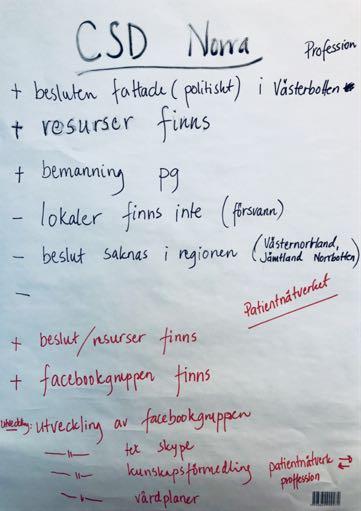 CSD Norra
Profession
+ besluten fattade (politiskt) i Västerbotten
+ resurser finns
+ bemanning pg
- lokaler finns inte (försvann)
- beslut saknas i regionen (Västernorrland,
Jämtland Norrbotten)
-
Patientnätverket
+ beslut/resurser finns
+ facebookgruppen finns
Utveckling: utveckling av facebookgruppen
—"— tex skype
—"— kunskapsförmedling patientnätverk ⇄
proffession
—"— vårdplaner